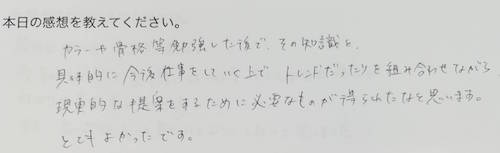 本日の感想を教えてください。
カラーや骨格等勉強した後で、その知識を、
具体的に今後仕事をしていく上で トレンドだったりを組み合わせながら
現実的な提案をするために必要なものが得られたなと思います。
とてもよかったです。